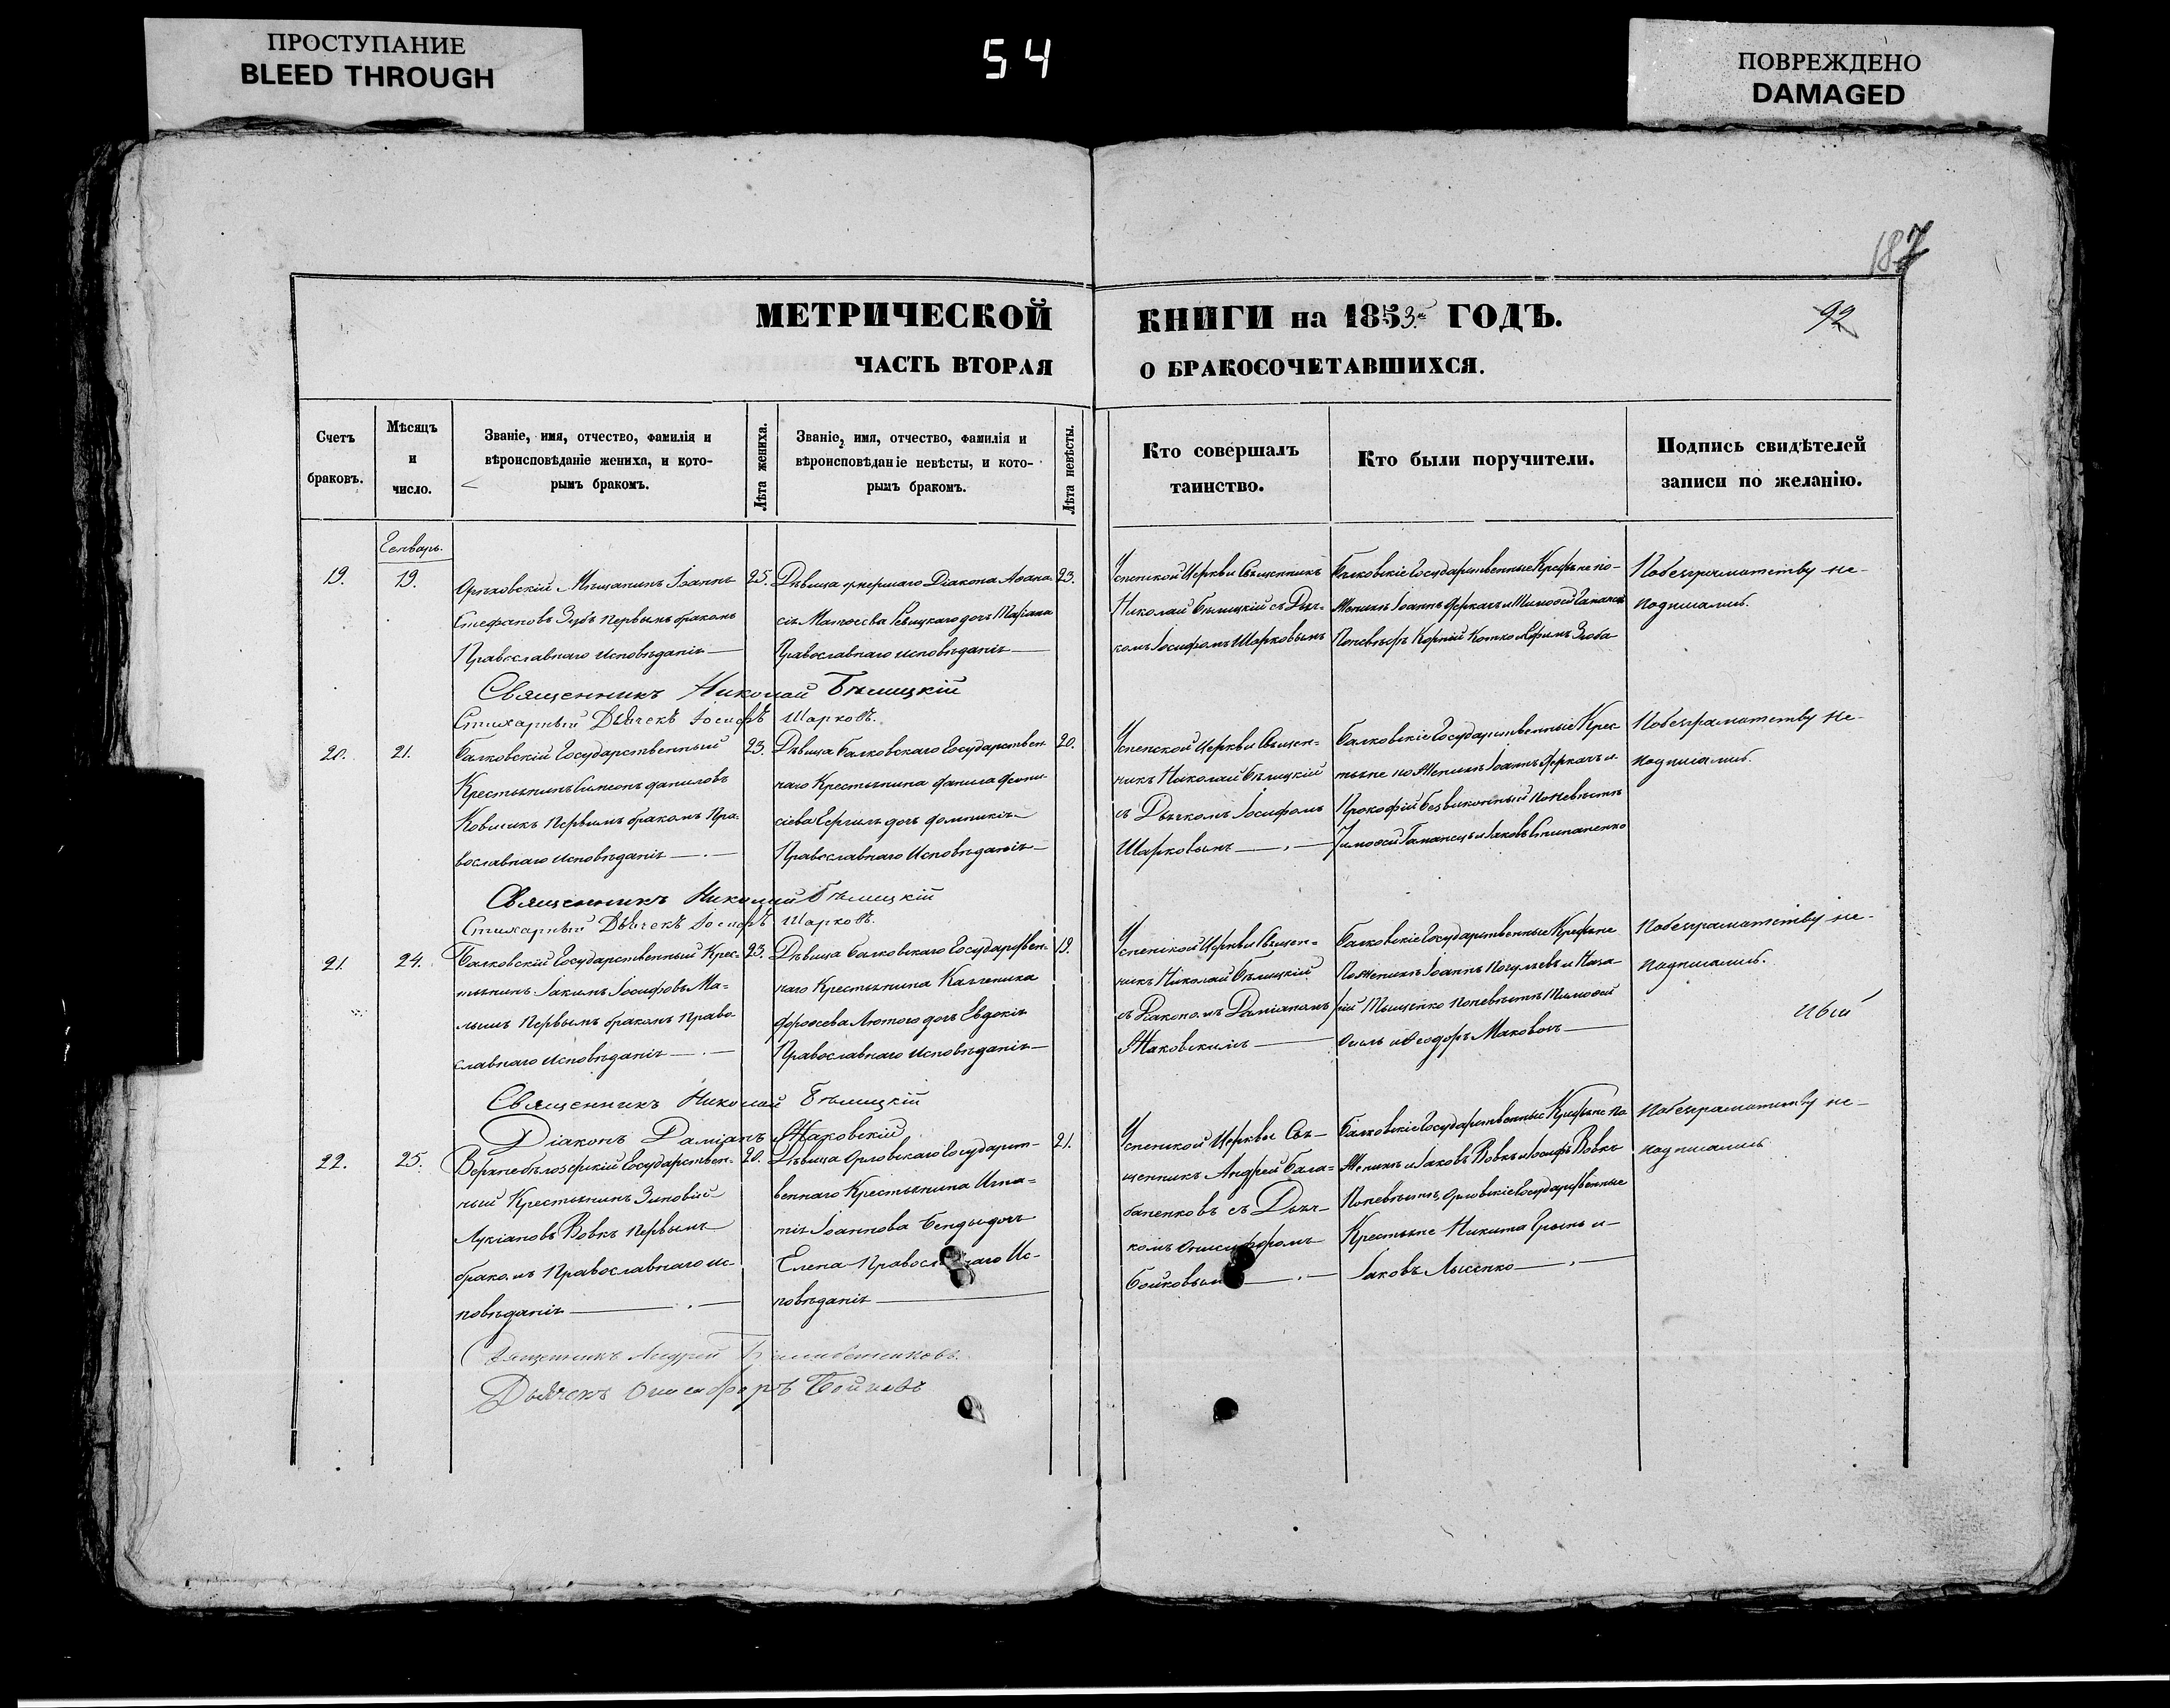 ПРОСТУПАНИЕ
BLEED THROUGH
54
ПОВРЕЖДЕНО
DAMAGED
187
92
МЕТРИЧЕСКОЙ КНИГИ на 1853 ГОДЪ.
ЧАСТЬ ВТОРАЯ О БРАКОСОЧЕТАВШИХСЯ.
Счетъ
браковъ.
Мѣсяцъ
и
число.
Званіе, имя, отчество, фамилія и
вѣроисповѣданіе жениха, и кото-
рымъ бракомъ.
Лѣта жениха.
Званіе, имя, отчество, фамилія и
вѣроисповѣданіе невѣсты, и кото-
рымъ бракомъ.
Лѣта невѣсты.
Кто совершалъ
таинство.
Кто были поручители.
Подпись свидѣтелей
записи по желанію.
Генварь.
19.
19.
Орѣховскій Мѣщанинъ Іоаннъ
Стефановъ Зубъ первымъ бракомъ
Православнаго исповѣданія
25.
Дѣвица умершаго Діакона Аѳана
сія Матѳеева дочь Маріана
Православнаго исповѣданія
23.
Успенской Церкви Священникъ
Николай Бѣлицкій съ Дьяч-
комъ Іосифомъ Шарковымъ
Балковскіе Государственные Крестьяне по
Женихѣ Іоаннъ Феркачъ и Тимоѳей Гаманецъ
По невѣстѣ Корній Котко Ефимъ Злоба
По безграматству не-
подписались.
Священникъ Николай Бѣлицкій
Стихарный Дьячекъ Іосифъ Шарковъ.
20.
21.
Балковскій Государственный
Крестьянинъ Симеонъ Даниловъ
Ковликъ первымъ бракомъ Пра-
вославнаго исповѣданія
23.
Дѣвица Балковскаго Государствен
наго Крестьянина Данила
сіева дочь Домникія
Православнаго Исповѣданія
20.
Успенской Церкви Священ=
никъ Николай Бѣлицкій
съ Дьячкомъ Іосифомъ
Шарковымъ
Балковскіе Государственные Крес
тьяне по Женихѣ Іоаннъ Феркачъ и
Прокофій Безвиконный по невѣстѣ
Тимоѳей Гаманецъ и Іаковъ Степаненко
По безграматству не-
подписались.
Священникъ Николай Бѣлицкій
Стихарный Дьячекъ Іосифъ Шарковъ.
21.
24.
Балковскій Государственный Крес-
тьянинъ Іакимъ Іосифовъ Ма-
лышъ Первымъ бракомъ Право-
славнаго исповѣданія
23.
Дѣвица Балковскаго Государствен-
наго Крестьянина Каленика
Дороѳеева Лютого дочь Евдокія
Православнаго Исповѣданія
19.
Успенской Церкви Священ=
никъ Николай Бѣлицкій
съ Діакономъ Даміаномъ
Жаковскимъ
Балковскіе Государственные Крестьяне
По Женихѣ Іоаннъ и Наза-
рій Тищенко по невѣстѣ Тимоѳей
и Ѳеодоръ Маковозъ
По безграматству не-
подписались.
Священникъ Николай Бѣлицкій
Діаконъ Даміанъ Жаковскій
22.
25.
Верхнебѣлозерскій Государствен-
ный Крестьянинъ Зиновій
Лукіановъ Вовкъ первымъ
бракомъ Православнаго ис-
повѣданія
20.
Дѣвица Орловскаго Государст-
веннаго Крестьянина Игна-
тія Іоаннова Бенды дочь
Елена Православнаго Ис-
повѣданія
21.
Успенской Церкви Свя-
щенникъ Андрей Бала-
баненковъ съ Дьяч-
комъ Онисифоромъ
Бойковымъ
Балковскіе Государственные Крестьяне По
Женихѣ Іаковъ Вовкъ и Іосифъ Вовкъ
По невѣстѣ, Орловскіе Государственные
Крестьяне Никита Гринь и-
Іаковъ Лысенко
По безграматству не-
подписались
Священникъ Андрей Балабаненковъ.
Дьячекъ Онисифоръ Бойковъ